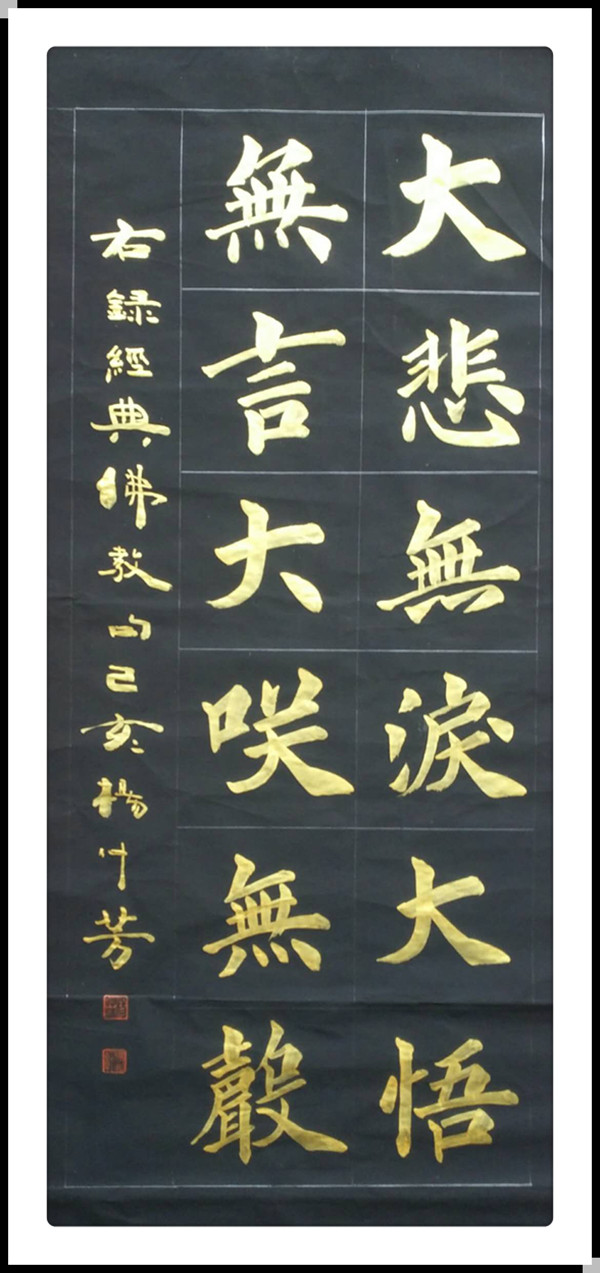 大悲無淚大悟
無言大咲無聲
右録經典佛教句己亥楊叶芳